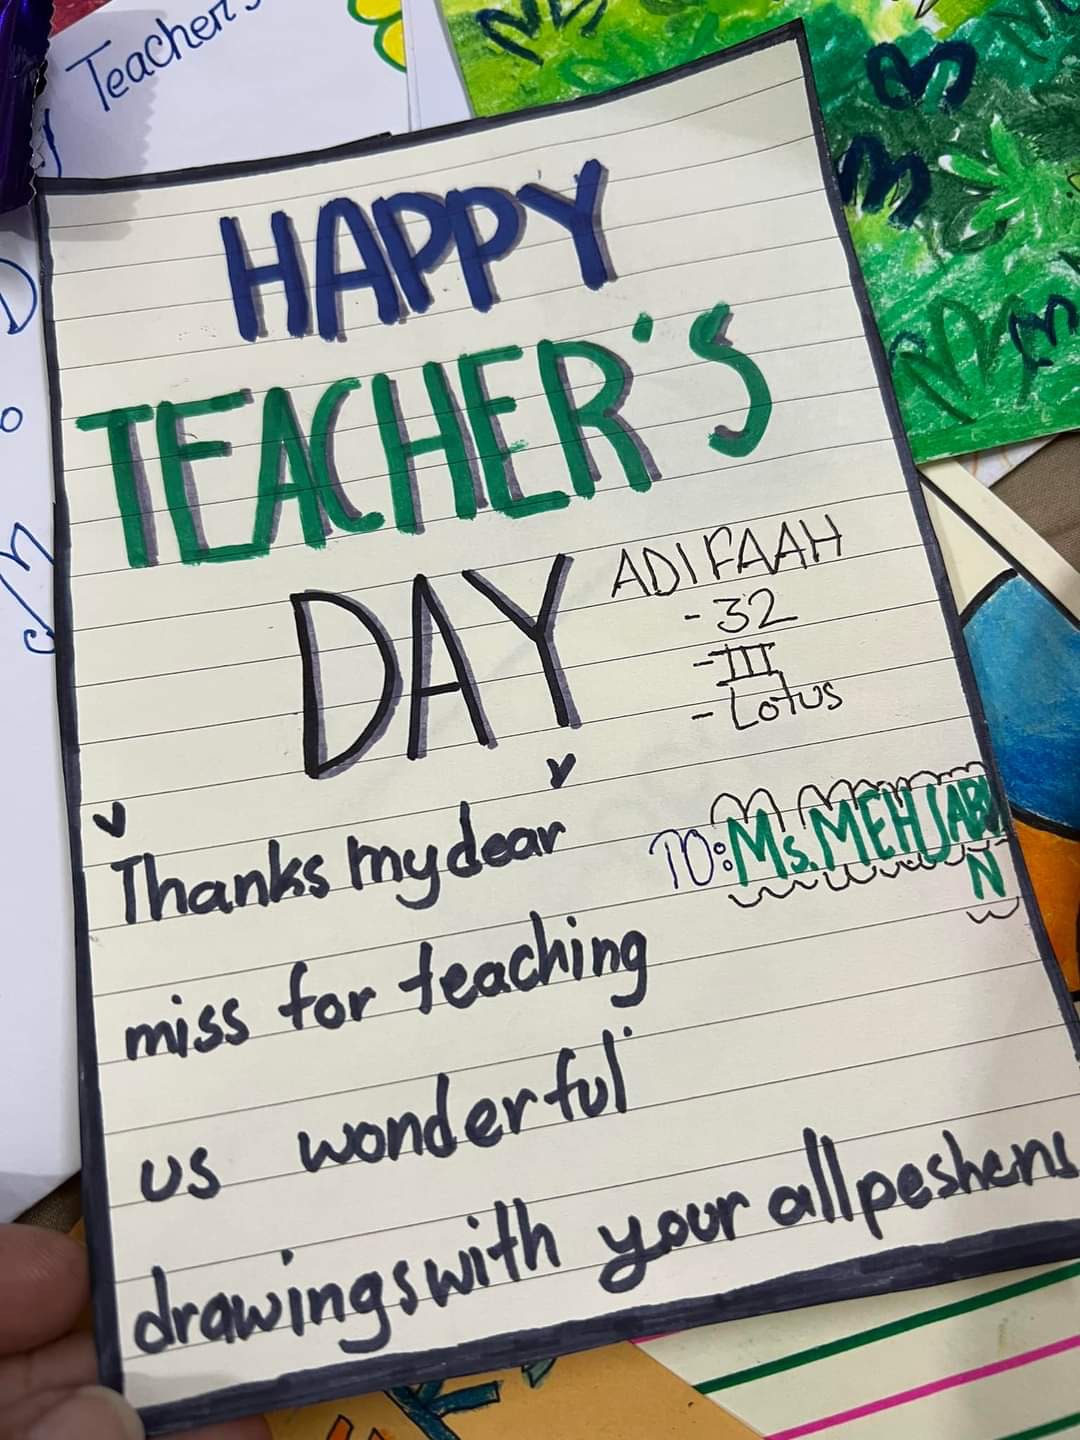 Teacher's
HAPPY
TEACHER'S
DAY
ADIFAAH
- 32
- III
- Lotus
TO: Ms. MEHJABI
N
Thanks my dear
miss for teaching
us wonderful
drawings with your all peshens